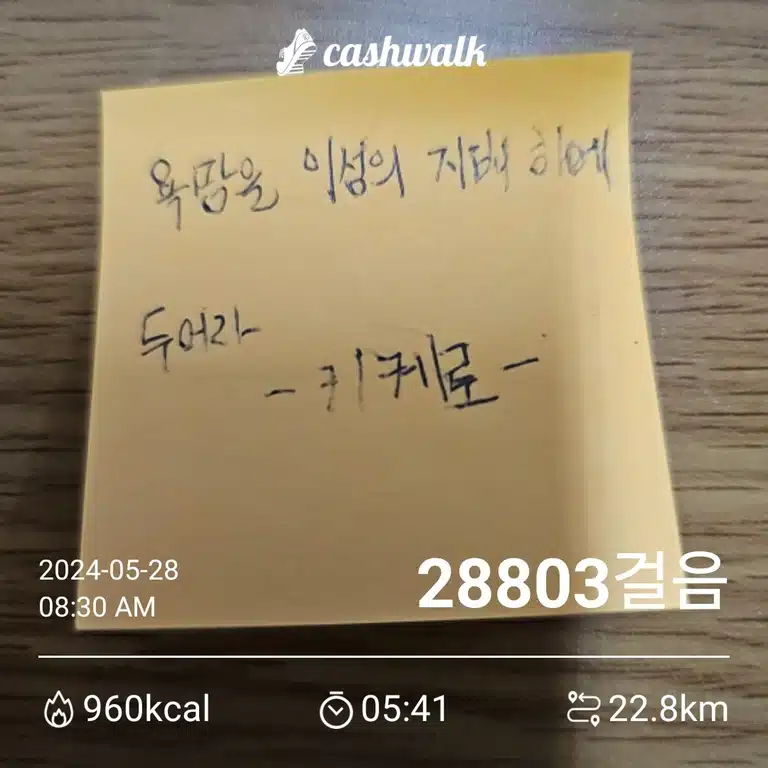 cashwalk
욕망을 이성의 지배 하에
두어라
- 키케로 -
2024-05-28
08:30 AM
28803걸음
960kcal
05:41
22.8km